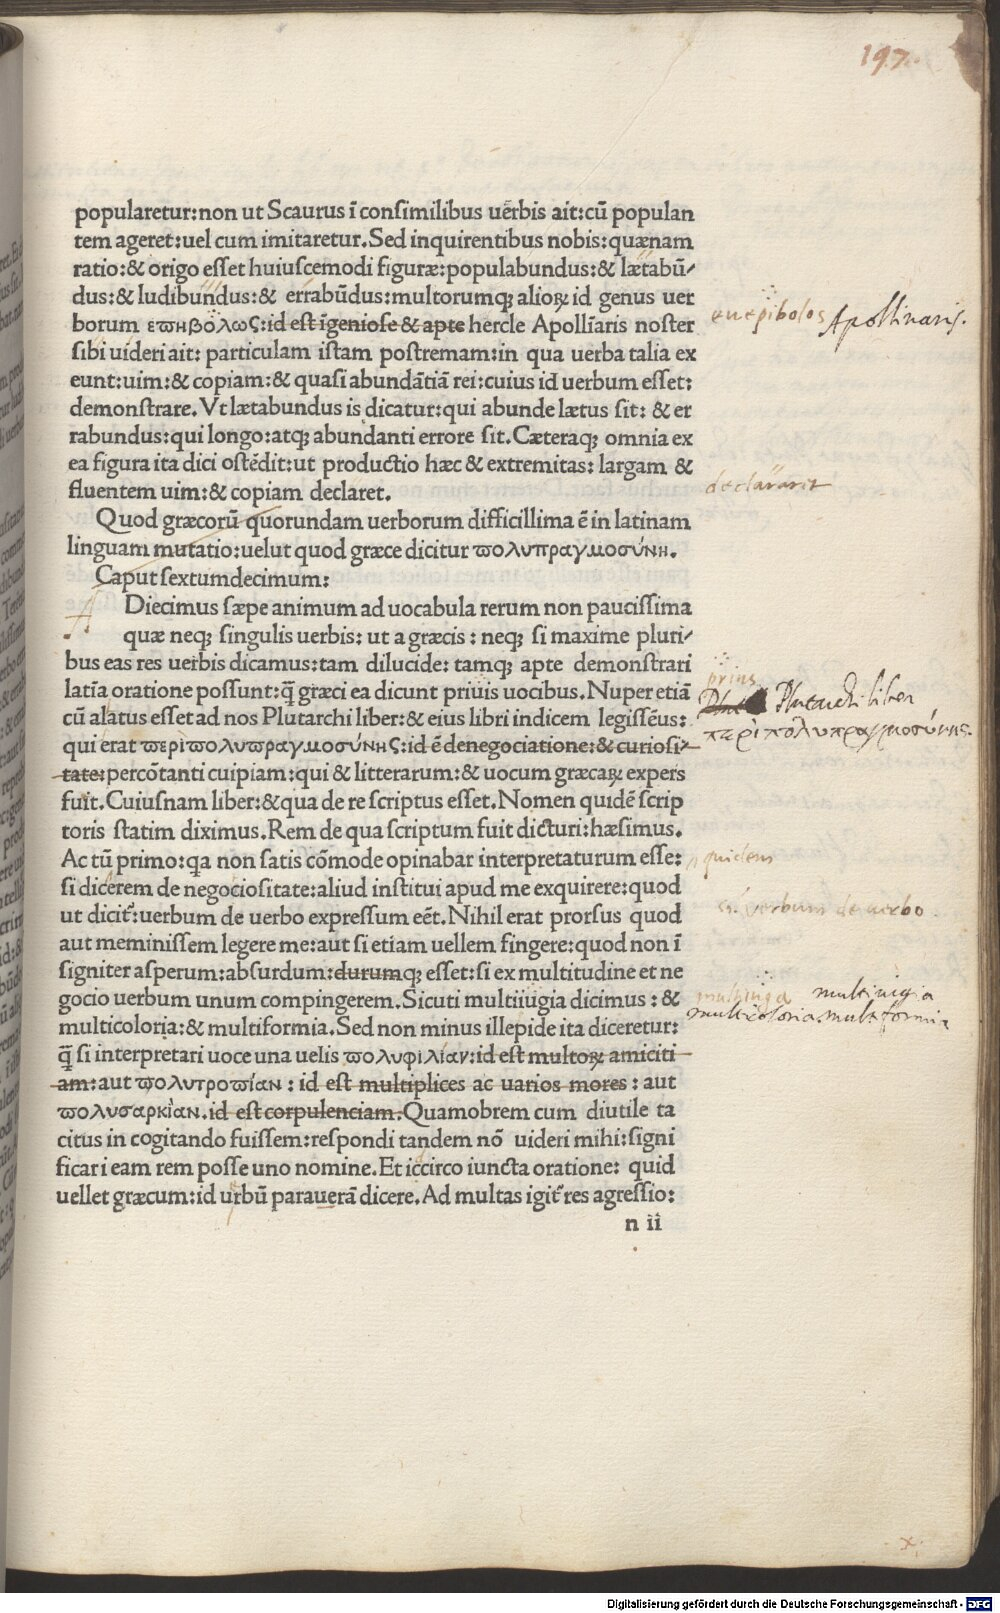 197.
popularetur:non ut Scaurus ī consimilibus uerbis ait:cū populan
tem ageret:uel cum imitaretur.Sed inquirentibus nobis:quænam
ratio:& origo esset huiuscemodi figuræ:populabundus:& lætabū-
dus:& ludibundus:& errabūdus:multorumqꝫ alioꝝ id genus uer
borum επηβόλως:id est īgeniose & apte hercle Apollīaris noster
euepibolos Apollinaris.
sibi uideri ait: particulam istam postremam:in qua uerba talia ex
eunt:uim:& copiam:& quasi abundātiā rei:cuius id uerbum esset:
demonstrare.Vt lætabundus is dicatur:qui abunde lætus sit: & er
rabundus:qui longo:atqꝫ abundanti errore sit.Cæteraqꝫ omnia ex
ea figura ita dici ostēdit:ut productio hæc & extremitas: largam &
fluentem uim:& copiam declaret.
declararit
Quod græcorū quorundam uerborum difficillima ē in latinam
linguam mutatio:uelut quod græce dicitur πολυπραγμοσύνη.
Caput sextumdecimum:
A
Diecimus sæpe animum ad uocabula rerum non paucissima
quæ neqꝫ singulis uerbis: ut a græcis : neqꝫ si maxime pluri-
bus eas res uerbis dicamus:tam dilucide: tamqꝫ apte demonstrari
latīa oratione possunt:q̄ græci ea dicunt priuis uocibus.Nuper etiā
prius
cū alatus esset ad nos Plutarchi liber:& eius libri indicem legissēus:
Plutarchi liber
qui erat περὶ πολυπραγμοσύνης:id ē de negociatione:& curiosi-
περὶ πολυπραγμοσύνης.
tate:percōtanti cuipiam:qui & litterarum:& uocum græcaꝝ expers
fuit.Cuiusnam liber:&qua de re scriptus esset.Nomen quidē scrip
toris statim diximus.Rem de qua scriptum fuit dicturi:hæsimus.
Ac tū primo:qa non satis cōmode opinabar interpretaturum esse:
quidem
si dicerem de negociositate:aliud institui apud me exquirere:quod
ut dicit̃:uerbum de uerbo expressum eēt.Nihil erat prorsus quod
verbum de uerbo
aut meminissem legere me:aut si etiam uellem fingere:quod non ī
signiter asperum:absurdum:durumqꝫ esset:si ex multitudine et ne
gocio uerbum unum compingerem.Sicuti multiiugia dicimus : &
multiiuga multiiugia
multicoloria:& multiformia.Sed non minus illepide ita diceretur:
multicoloria.multiformia
q̄ si interpretari uoce una uelis πολυφιλίαν:id est multoꝝ amiciti
am:aut πολυτροπίαν : id est multiplices ac uarios mores : aut
πολυσαρκίαν.id est corpulenciam.Quamobrem cum diutile ta
citus in cogitando fuissem:respondi tandem nō uideri mihi:signi
ficari eam rem posse uno nomine.Et iccirco iuncta oratione: quid
uellet græcum:id urbū parauerā dicere.Ad multas igit̃ res agressio:
n ii
x
Digitalisierung gefördert durch die Deutsche Forschungsgemeinschaft - DFG